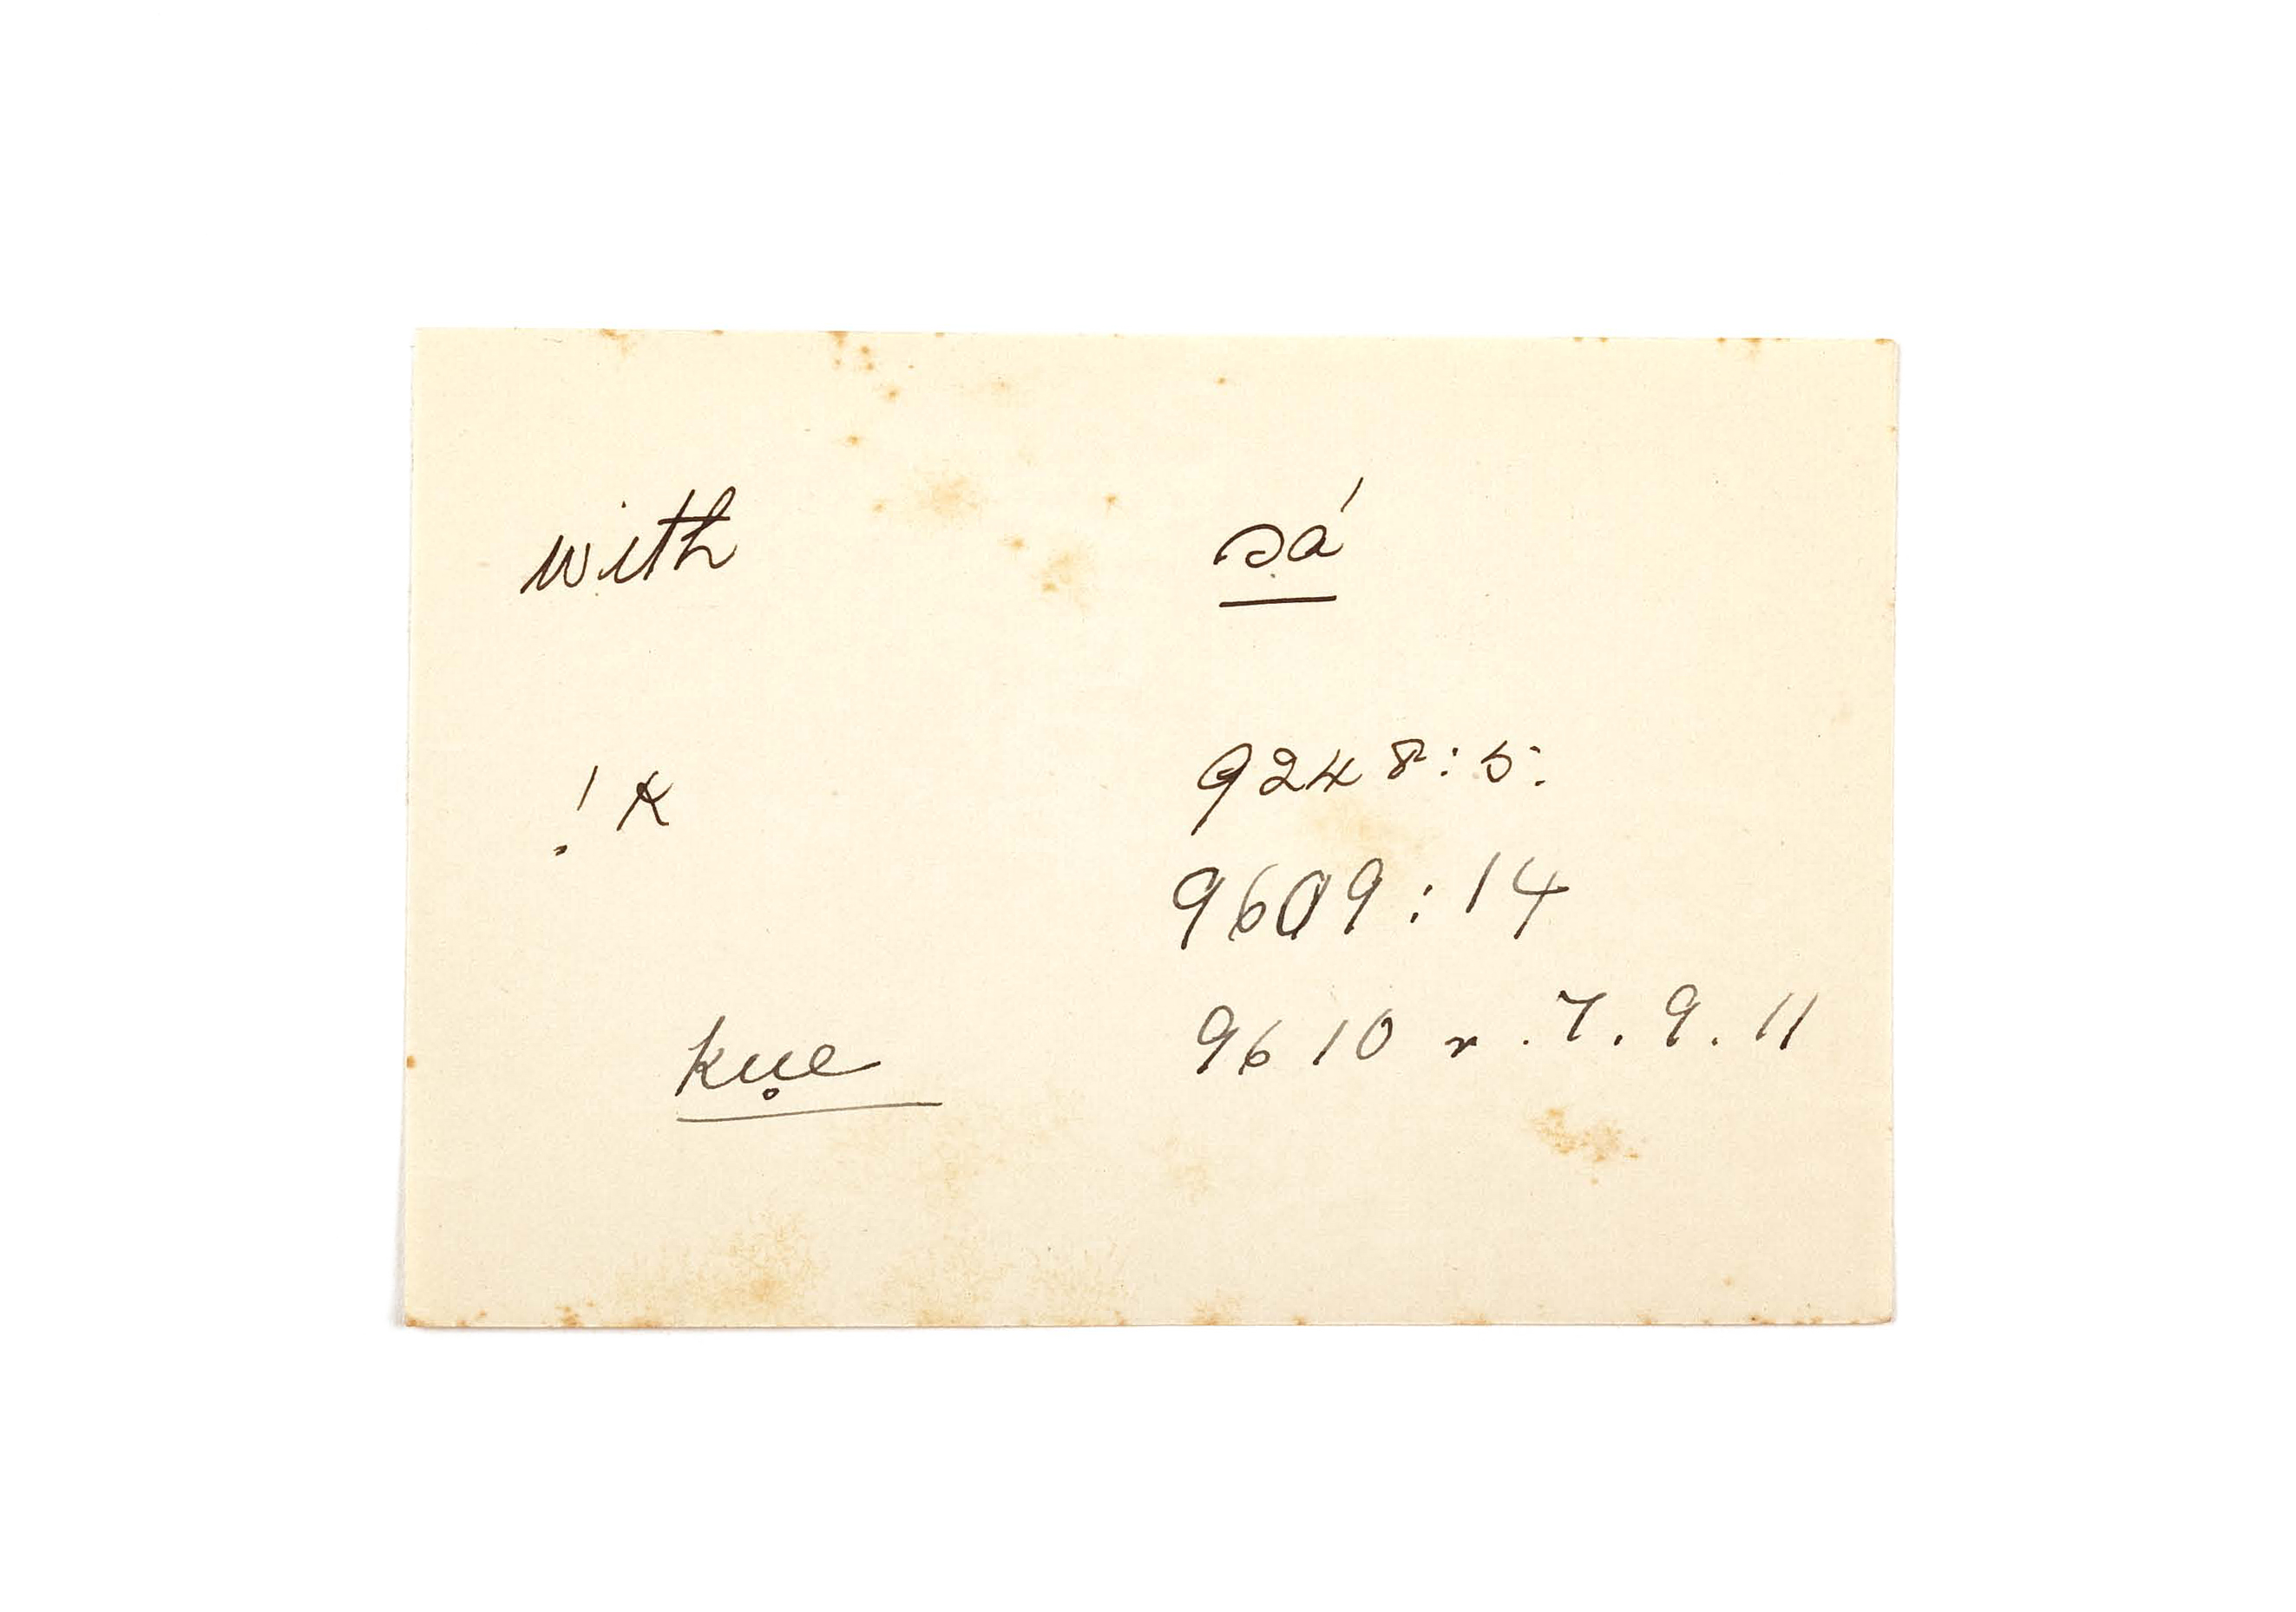 with sá
!k 9248:5.
9609:14
ku̥e 9610 r. 7. 9. 11